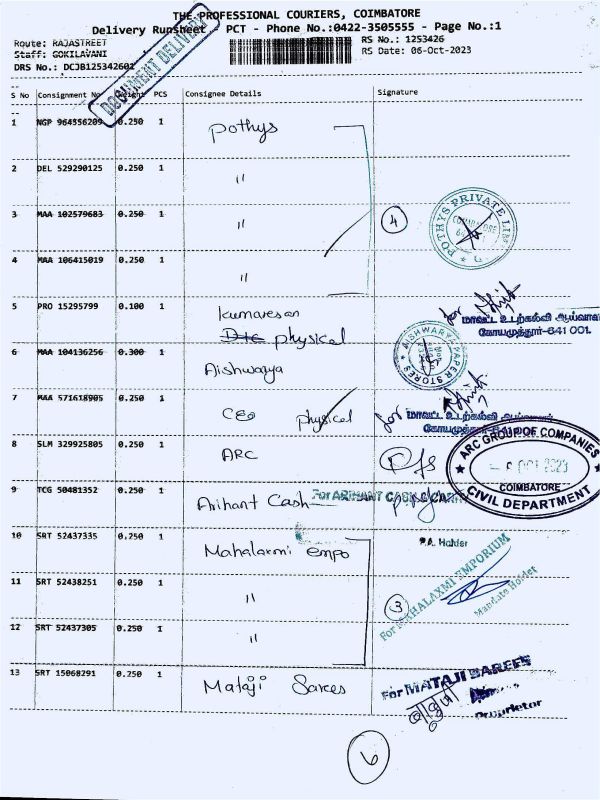 THE PROFESSIONAL COURIERS, COIMBATORE
Delivery Runsheet - PCT - Phone No.:0422-3505555 - Page No.:1
Route: RAJASTREET
RS No.: 1253426
Staff: GOKILAVANI
RS Date: 06-Oct-2023
DRS No.: DCJB125342601
DOCUMENT DELIVERY
S No Consignment No Weight PCS Consignee Details Signature
1 NGP 964556209 0.250 1 Pothys
2 DEL 529290125 0.250 1 "
3 MAA 102579683 0.250 1 " 4
POTHYS PRIVATE LIMITED COIMBATORE
4 MAA 106415019 0.250 1 "
5 PRO 15295799 0.100 1 Kumaresan
Dtc physical
for
மாவட்ட உடற்கல்வி ஆய்வாளர்
கோயமுத்தூர்-641 001.
6 MAA 104136256 0.300 1 Aishwarya
AISHWARYA PAPER STORES
7 MAA 571618905 0.250 1 CEO physical
for மாவட்ட உடற்கல்வி ஆய்வாளர்
கோயமுத்தூர்-641 001.
8 SLM 329925805 0.250 1 ARC
ARC GROUP OF COMPANIES
OCT 2023
COIMBATORE
CIVIL DEPARTMENT
9 TCG 50481352 0.250 1 Arihant Cash
For ARIHANT CASH & CARRY
P.A. Holder
10 SRT 52437335 0.250 1 Mahalaxmi empo
For MAHALAXMI EMPORIUM
Mandate Holder
11 SRT 52438251 0.250 1 " 3
12 SRT 52437305 0.250 1 "
13 SRT 15068291 0.250 1 Mataji Sarees
For MATAJI SAREES
Proprietor
6